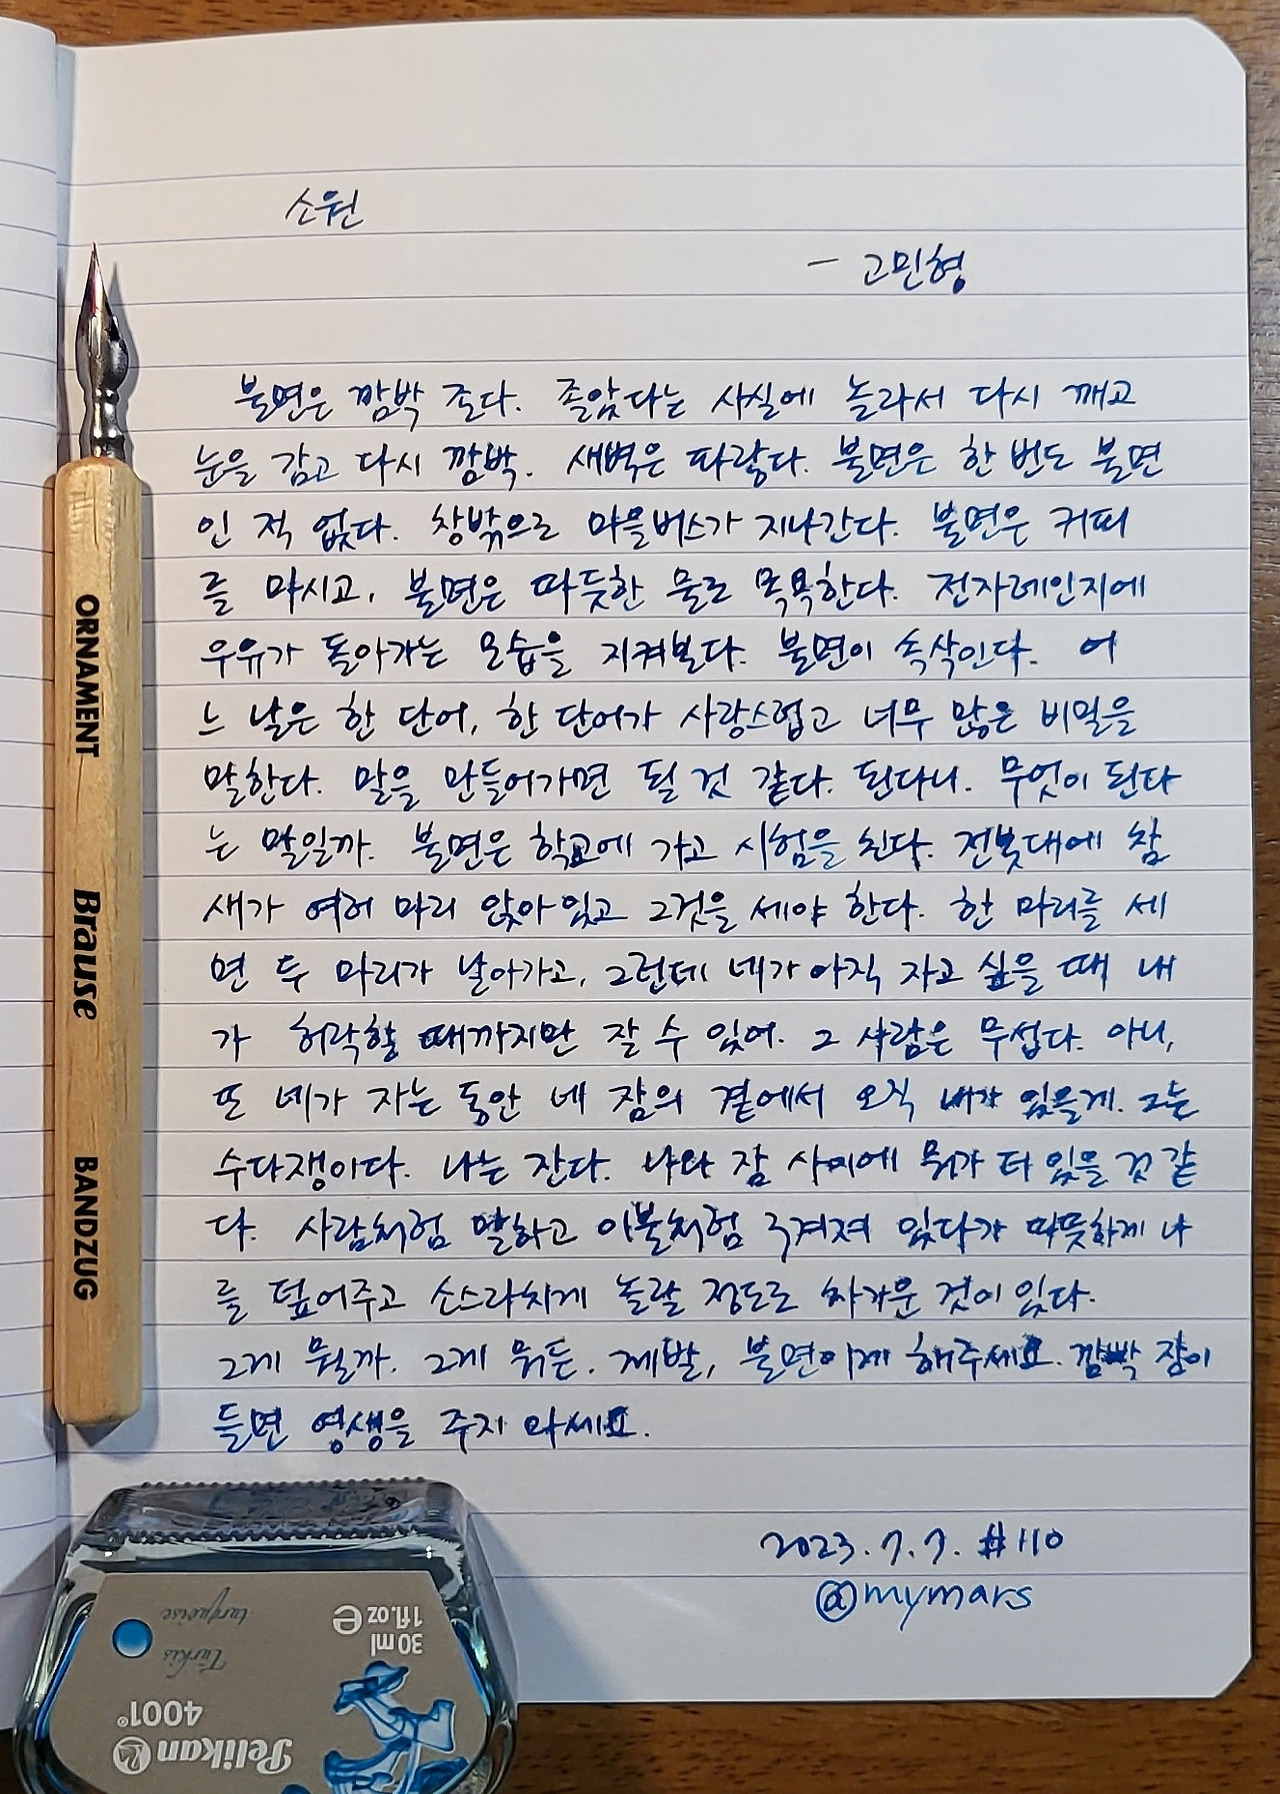 소원
- 고민형
불면은 깜박 존다. 졸았다는 사실에 놀라서 다시 깨고
눈을 감고 다시 깜박. 새벽은 파랗다. 불면은 한 번도 불면
인 적 없다. 창밖으로 마을버스가 지나간다. 불면은 커피
를 마시고, 불면은 따듯한 물로 목욕한다. 전자레인지에
우유가 돌아가는 모습을 지켜본다. 불면이 속삭인다. 어
느 날은 한 단어, 한 단어가 사랑스럽고 너무 많은 비밀을
말한다. 말을 만들어가면 될 것 같다. 된다니. 무엇이 된다
는 말일까. 불면은 학교에 가고 시험을 친다. 전봇대에 참
새가 여러 마리 앉아 있고 그것을 세야 한다. 한 마리를 세
면 두 마리가 날아가고, 그런데 네가 아직 자고 싶을 때 내
가 허락할 때까지만 잘 수 있어. 그 사람은 무섭다. 아니,
또 네가 자는 동안 네 잠의 곁에서 오직 내가 있을게. 그는
수다쟁이다. 나는 잔다. 나와 잠 사이에 뭐가 더 있을 것 같
다. 사람처럼 말하고 이불처럼 구겨져 있다가 따뜻하게 나
를 덮어주고 소스라치게 놀랄 정도로 차가운 것이 있다.
그게 뭘까. 그게 뭐든. 제발, 불면이게 해주세요. 깜빡 잠이
들면 영생을 주지 마세요.
2023.7.7. #110
@mymars
ORNAMENT Brause BANDZUG
Pelikan
4001®
Türkis
turquoise
30 ml
1 fl.oz e